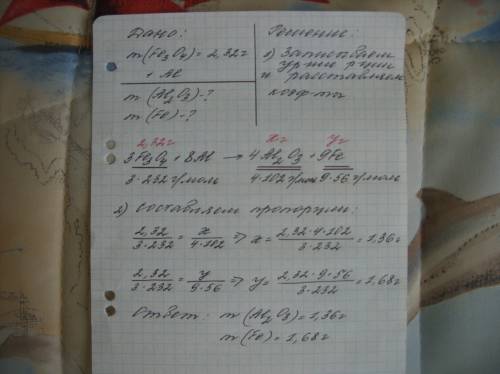 Дано:
m(Fe3O4) = 2,32г
+ Al
m(Al2O3) - ?
m(Fe) - ?
Решение:
1) Записываем
ур-ние р-ции
и расставляем
коэф-ты
2,32г xг yг
3Fe3O4 + 8Al → 4Al2O3 + 9Fe
3·232 г/моль 4·102 г/моль 9·56 г/моль
2) составляем пропорции:
2,32/3·232 = x/4·102 ⇒ x = 2,32·4·102/3·232 = 1,36г
2,32/3·232 = y/9·56 ⇒ y = 2,32·9·56/3·232 = 1,68г
Ответ: m(Al2O3) = 1,36г
m(Fe) = 1,68г